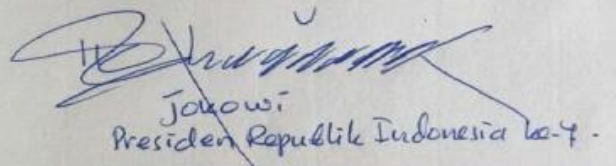 Jokowi
Presiden Republik Indonesia ke-7.